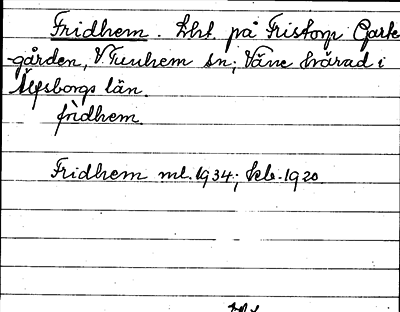 Fridhem. Lht. på Fristorp Garke-
gården, V Tunhem sn; Väne härad i
Älfsborgs län.
frìdhem.
Fridhem ml. 1934; kb. 1920.